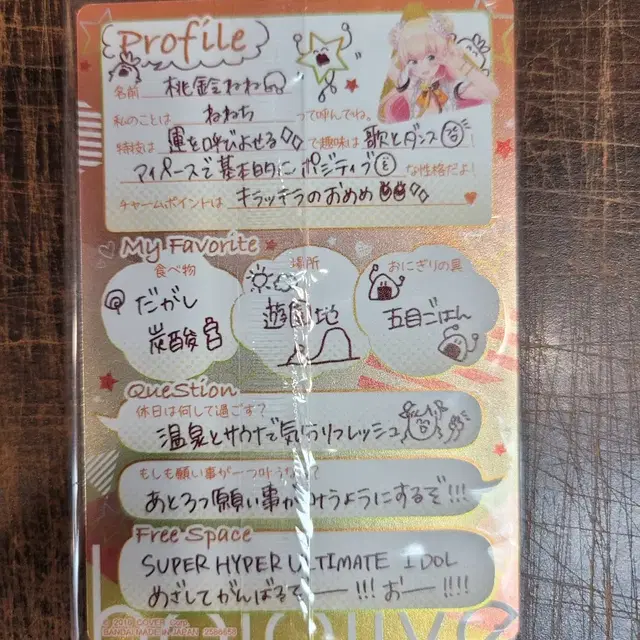 Profile
名前 桃鈴ねね
私のことは ねねち って呼んでね。
特技は 運を呼びよせる で趣味は 歌とダンス
マイペースで基本的にポジティブ な性格だよ!
チャームポイントは キラッキラのおめめ
My Favorite
食べ物
だがし
炭酸
場所
遊園地
おにぎりの具
五目ごはん
Question
休日は何して過ごす?
温泉とサウナで気分リフレッシュ
もしも願い事が一つ叶う
あと3つ願い事が叶うようにするぞ!!!
Free Space
SUPER HYPER ULTIMATE IDOL
めざしてがんばるぞ──!!! おー─!!!!
© 2016 COVER Corp.
BANDAI MADE IN JAPAN
hololive